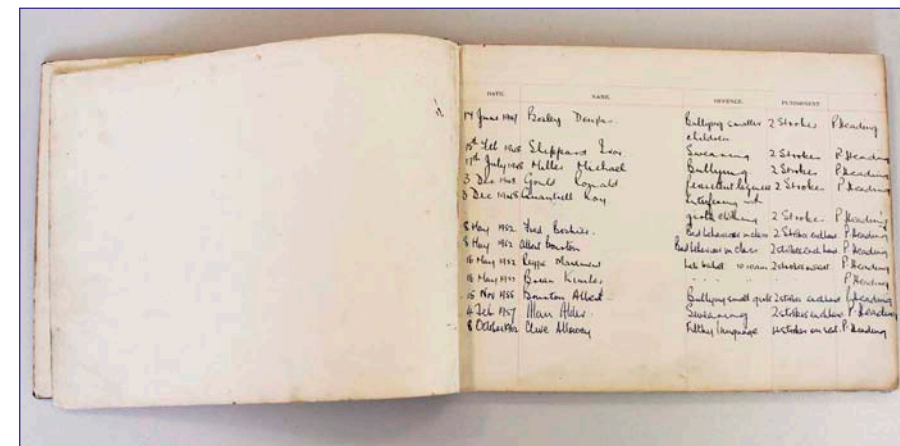 DATE. NAME. OFFENCE. PUNISHMENT
14 June 1947 Bosley Douglas. Bullying smaller 2 Strokes P. Heading
children
Sheppard Swearing 2 Strokes P. Heading
17th July 1948 Millet Michael Bullying 2 Strokes P. Heading
3 Dec 1948 Gould Ronald Persistent laziness 2 Strokes P. Heading
3 Dec 1948 Quantrell Roy Interfering with
girls clothing 2 Strokes P. Heading
8 May 1952 Fred Bad behaviour in class 2 Strokes each hand P. Heading
8 May 1952 Albert Bounton Bad behaviour in class 2 strokes each hand P. Heading
16 May 1952 Late 10.10am 2 strokes on seat P. Heading
16 May 1952 Brian " " " " P. Heading
15 Nov 1955 Bounton Albert Bullying small girls 2 strokes each hand P. Heading
4 Feb 1957 Alan Alder Swearing 2 strokes each hand P. Heading
8 October Clive Alloway Filthy language strokes on seat P. Heading